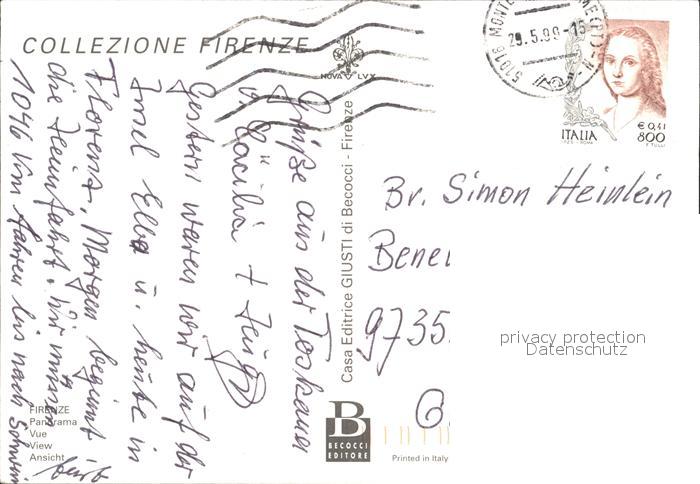 COLLEZIONE FIRENZE
NOVA LVX
29.5.99-15
ITALIA
€ 0,41
800
Grüße aus der Toskana
v. Cäcilia +
Gestern waren wir auf der
Insel Elba u. heute in
Florenz, Morgen beginnt
die Heimfahrt. Wir müssen
1046 km fahren bis nach
Casa Editrice GIUSTI di Becocci - Firenze
Br. Simon Heinlein
Bene
9735
privacy protection
Datenschutz
FIRENZE
Panorama
Vue
View
Ansicht
B
BECOCCI
EDITORE
Printed in Italy